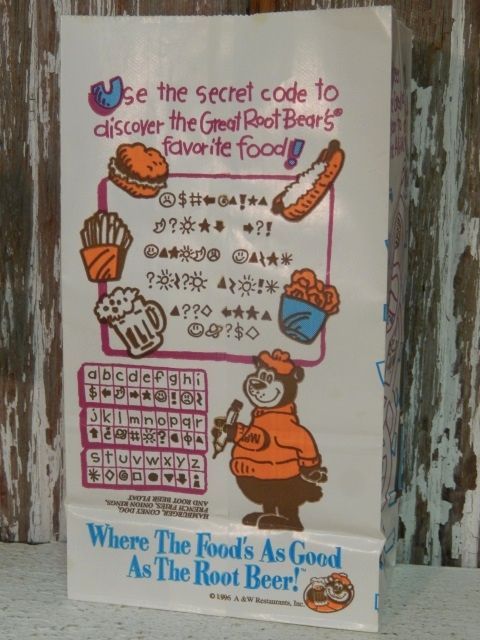 Use the secret code to
discover the Great Root Bear's®
favorite food!
a b c d e f g h i
j k l m n o p q r
s t u v w x y z
HAMBURGER, CONEY DOG,
FRENCH FRIES, ONION RINGS,
AND ROOT BEER FLOAT
Where The Food's As Good
As The Root Beer!™
© 1996 A & W Restaurants, Inc.